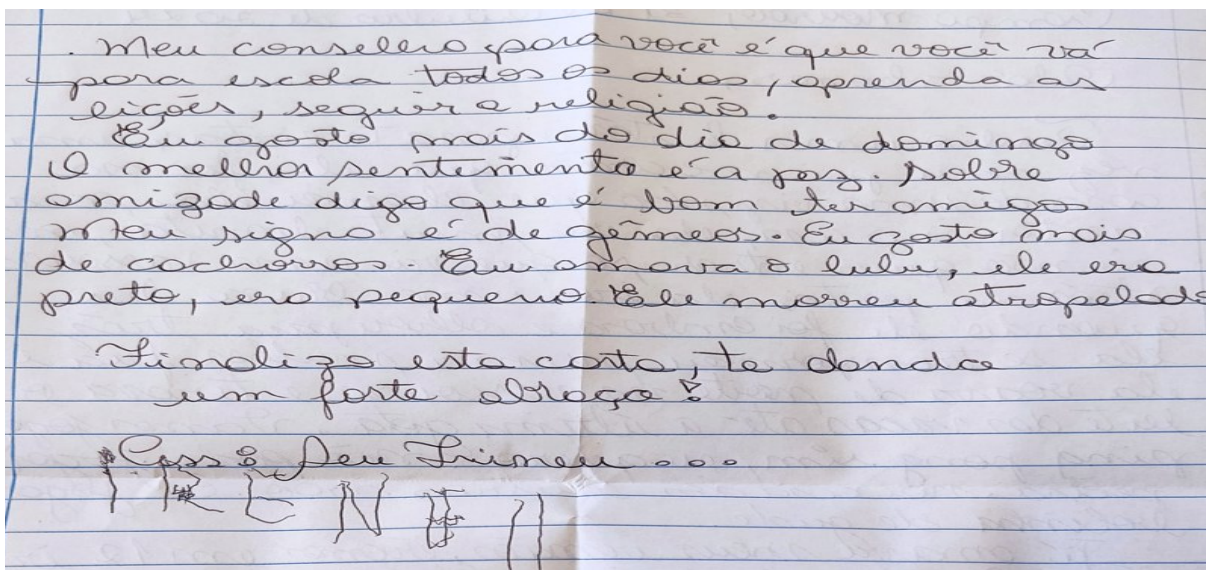 . Meu conselho para você é que você vá
para escola todos os dias, aprenda as
lições, seguir a religião.
Eu gosto mais do dia de domingo
O melhor sentimento é a paz. Sobre
amizade digo que é bom ter amigos
Meu signo é de gêmeos. Eu gosto mais
de cachorros. Eu amava o lulu, ele era
preto, era pequeno Ele morreu atropelado
Finalizo esta carta, te dando
um forte abraço!
Ass: Seu Irineu...
IRENEU